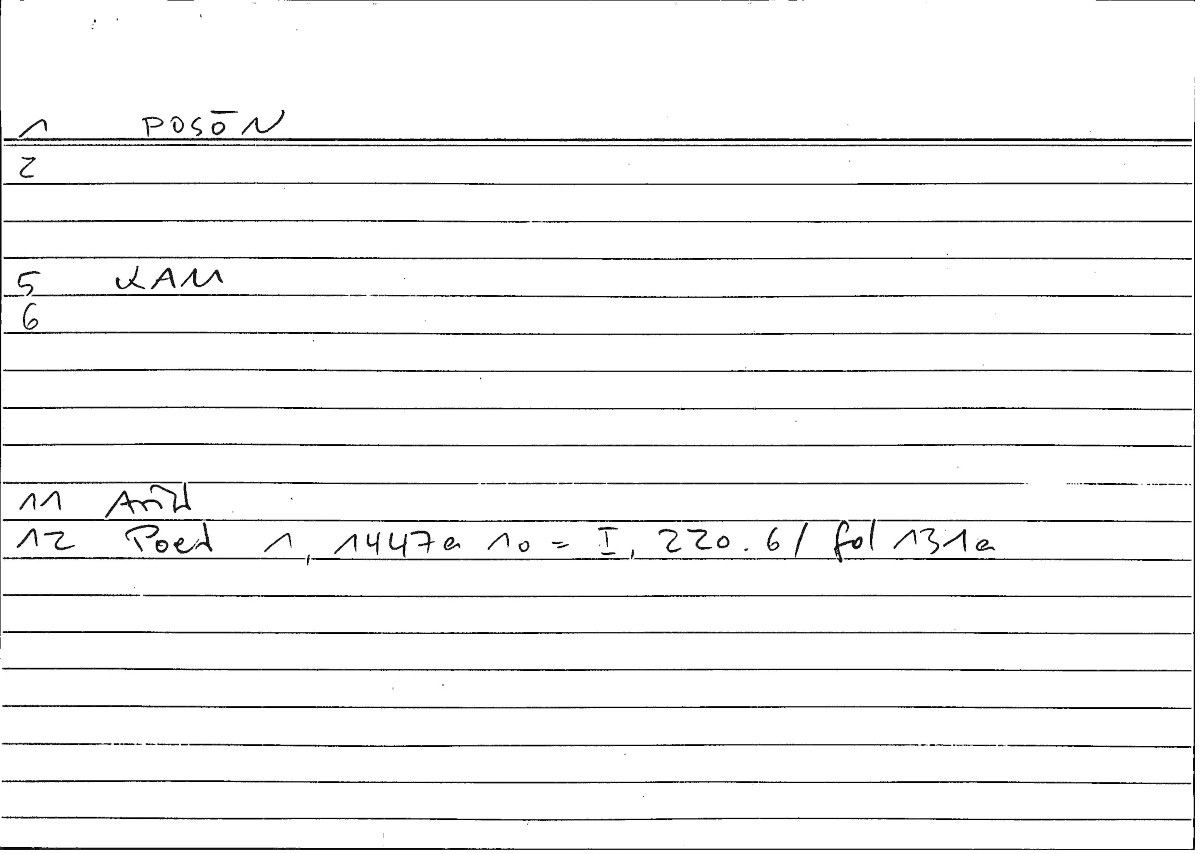 1 POSŌN
2
5 KAM
6
11 Arist
12 Poet 1, 1447a 10 = I, 220.6/ fol 131a